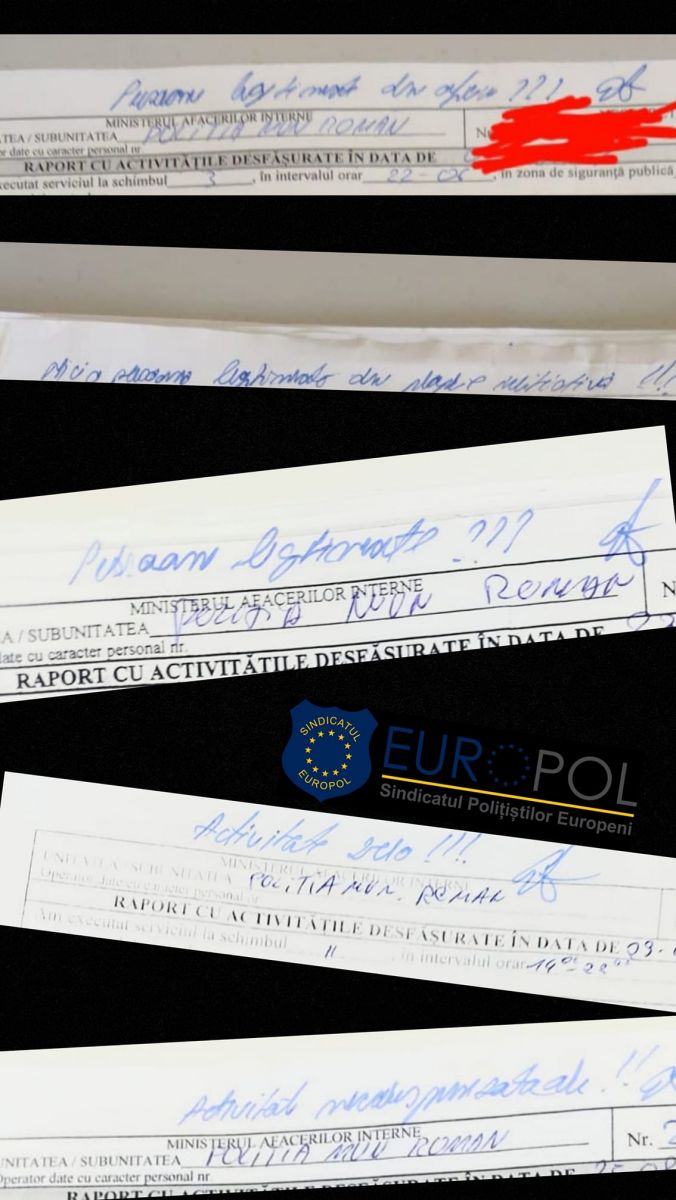 Persoane legitimate din oficiu ???
MINISTERUL AFACERILOR INTERNE
TEA / SUBUNITATEA POLITIA MUN ROMAN N
or date cu caracter personal nr.
RAPORT CU ACTIVITĂŢILE DESFĂŞURATE ÎN DATA DE
xecutat serviciul la schimbul 3, în intervalul orar 22-06, în zona de siguranţă publică
Nici o persoana legitimata din proprie initiativă !!!
Persoane legitimate ???
MINISTERUL AFACERILOR INTERNE
A / SUBUNITATEA POLITIA MUN ROMAN N
ate cu caracter personal nr.
RAPORT CU ACTIVITĂŢILE DESFĂŞURATE ÎN DATA DE
SINDICATUL
EUROPOL
EUROPOL
Sindicatul Polițiștilor Europeni
Activitate zero !!!
MINISTERUL AFACERILOR INTERNE
UNITATEA / SUBUNITATEA POLITIA MUN. ROMAN
Operator date cu caracter personal nr.
RAPORT CU ACTIVITĂŢILE DESFĂŞURATE ÎN DATA DE 03.
Am executat serviciul la schimbul II, în intervalul orar 14⁰⁰-22⁰⁰
Activitate !!
MINISTERUL AFACERILOR INTERNE
NITATEA / SUBUNITATEA POLITIA MUN ROMAN Nr. 2
Operator date cu caracter personal nr.
RAPORT CU ACTIVITĂŢILE DESFĂŞURATE ÎN DATA DE